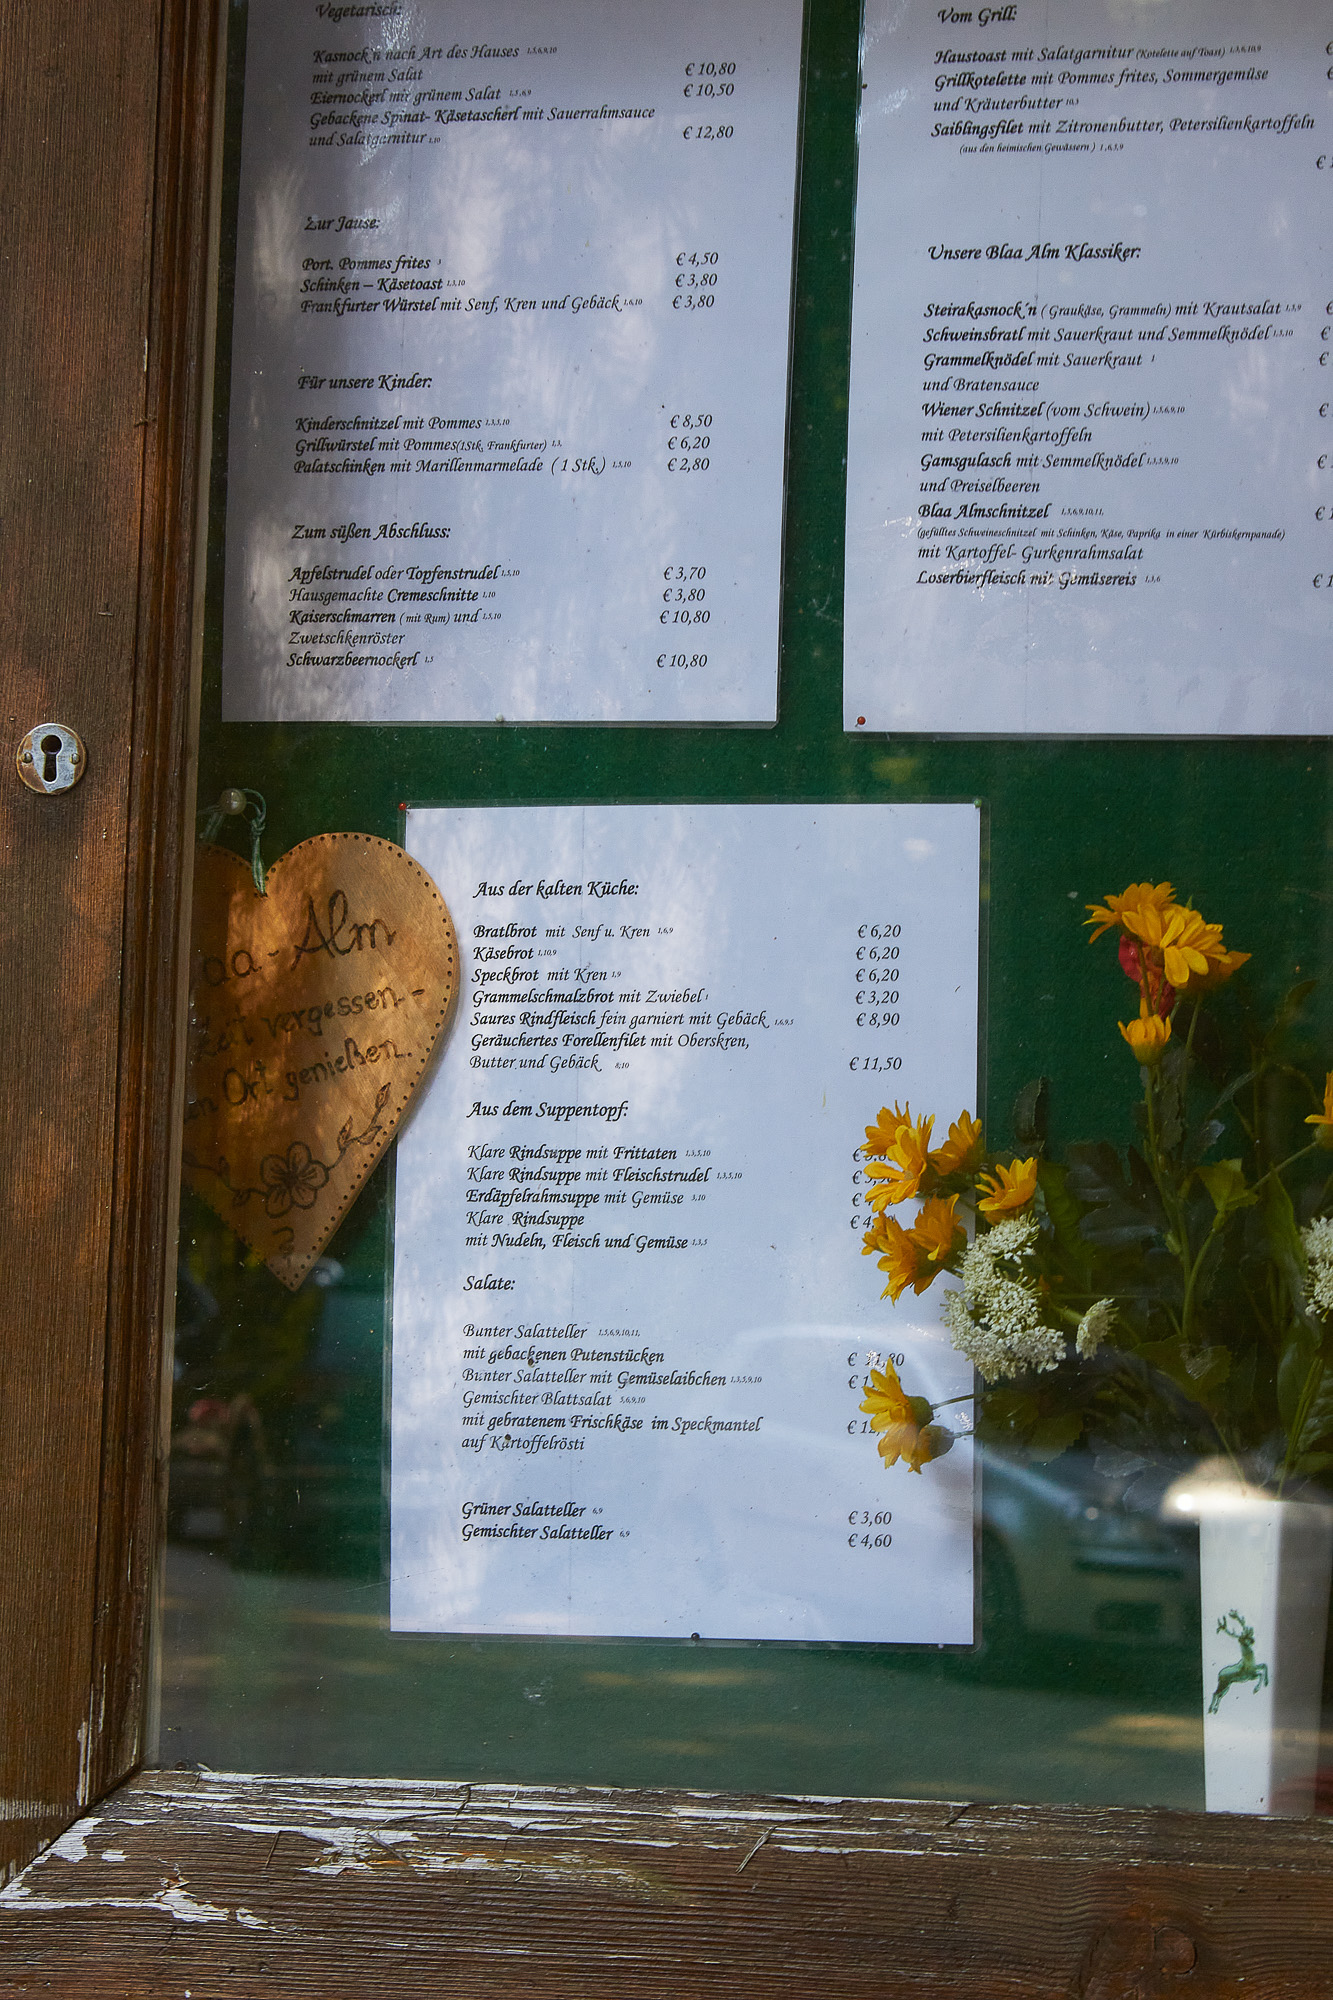 Vegetarisch:
Kasnock'n nach Art des Hauses 1,5,6,9,10
mit grünem Salat € 10,80
Eiernockerl mit grünem Salat 1,5,6,9 € 10,50
Gebackene Spinat- Käsetascherl mit Sauerrahmsauce
und Salatgarnitur 1,10 € 12,80
Zur Jause:
Port. Pommes frites € 4,50
Schinken – Käsetoast 1,3,10 € 3,80
Frankfurter Würstel mit Senf, Kren und Gebäck 1,6,10 € 3,80
Für unsere Kinder:
Kinderschnitzel mit Pommes 1,3,5,10 € 8,50
Grillwürstel mit Pommes(1Stk. Frankfurter) 1,3, € 6,20
Palatschinken mit Marillenmarmelade ( 1 Stk.) 1,5,10 € 2,80
Zum süßen Abschluss:
Apfelstrudel oder Topfenstrudel 1,5,10 € 3,70
Hausgemachte Cremeschnitte 1,10 € 3,80
Kaiserschmarren ( mit Rum) und 1,5,10 € 10,80
Zwetschkenröster
Schwarzbeernockerl 1,5 € 10,80
Vom Grill:
Haustoast mit Salatgarnitur (Kotelette auf Toast) 1,3,6,10,9 €
Grillkotelette mit Pommes frites, Sommergemüse €
und Kräuterbutter 10,3
Saiblingsfilet mit Zitronenbutter, Petersilienkartoffeln
(aus den heimischen Gewässern ) 1,6,5,9 €
Unsere Blaa Alm Klassiker:
Steirakasnock´n ( Graukäse, Grammeln) mit Krautsalat 1,3,9 €
Schweinsbratl mit Sauerkraut und Semmelknödel 1,3,10 €
Grammelknödel mit Sauerkraut 1 €
und Bratensauce
Wiener Schnitzel (vom Schwein) 1,5,6,9,10 €
mit Petersilienkartoffeln
Gamsgulasch mit Semmelknödel 1,3,5,9,10 €
und Preiselbeeren
Blaa Almschnitzel 1,5,6,9,10,11, € 1
(gefülltes Schweineschnitzel mit Schinken, Käse, Paprika in einer Kürbiskernpanade)
mit Kartoffel- Gurkenrahmsalat
Loserbierfleisch mit Gemüsereis 1,3,6 € 1
aa-Alm
vergessen-
Ort genießen.
Aus der kalten Küche:
Bratlbrot mit Senf u. Kren 1,6,9 € 6,20
Käsebrot 1,10,9 € 6,20
Speckbrot mit Kren 1,9 € 6,20
Grammelschmalzbrot mit Zwiebel 1 € 3,20
Saures Rindfleisch fein garniert mit Gebäck 1,6,9,5 € 8,90
Geräuchertes Forellenfilet mit Oberskren,
Butter und Gebäck 8,10 € 11,50
Aus dem Suppentopf:
Klare Rindsuppe mit Frittaten 1,3,5,10 €
Klare Rindsuppe mit Fleischstrudel 1,3,5,10 €
Erdäpfelrahmsuppe mit Gemüse 3,10 € 4
Klare Rindsuppe € 4,
mit Nudeln, Fleisch und Gemüse 1,3,5
Salate:
Bunter Salatteller 1,5,6,9,10,11,
mit gebackenen Putenstücken € 11,80
Bunter Salatteller mit Gemüselaibchen 1,3,5,9,10 € 1
Gemischter Blattsalat 5,6,9,10
mit gebratenem Frischkäse im Speckmantel € 12,
auf Kartoffelrösti
Grüner Salatteller 6,9 € 3,60
Gemischter Salatteller 6,9 € 4,60